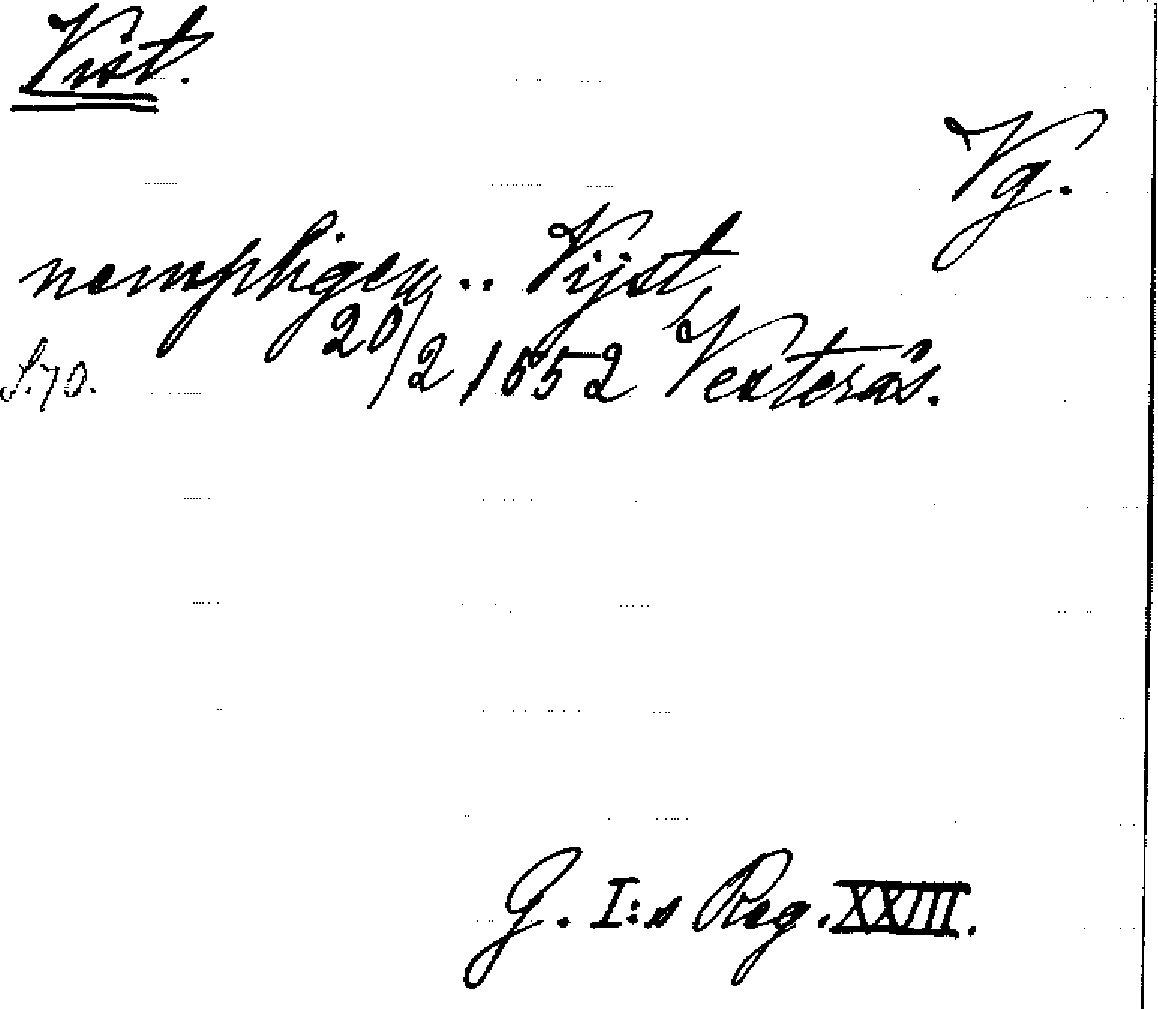 Vist.
Vg.
nempligen .. Vijst,
20/2 1552 Vesterås.
S. 70.
G. I:s Reg. XXIII.